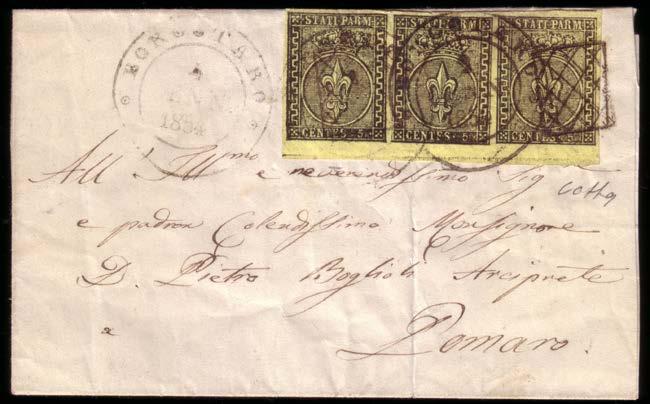 BORGOTARO
1854
STATI PARM STATI PARM STATI PARM
CENT.S 5 CENT.S 5 CENT.S 5
All' Ill.mo e reverendissimo Sig
e padron Colendissimo Monsignore
D. Pietro Boglioli Arciprete
a Pomaro.